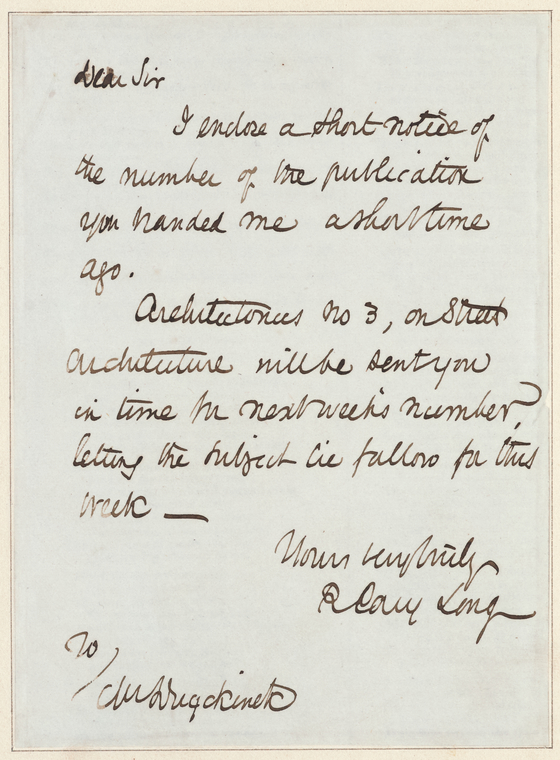 Dear Sir
I enclose a short notice of
the number of the publication
you handed me a short time
ago.
Architectonics no 3, on Street
Architecture will be sent you
in time for next week's number,
letting the subject lie fallow for this
week —
Yours very truly
R Cary Long
To
Mr Duyckinck